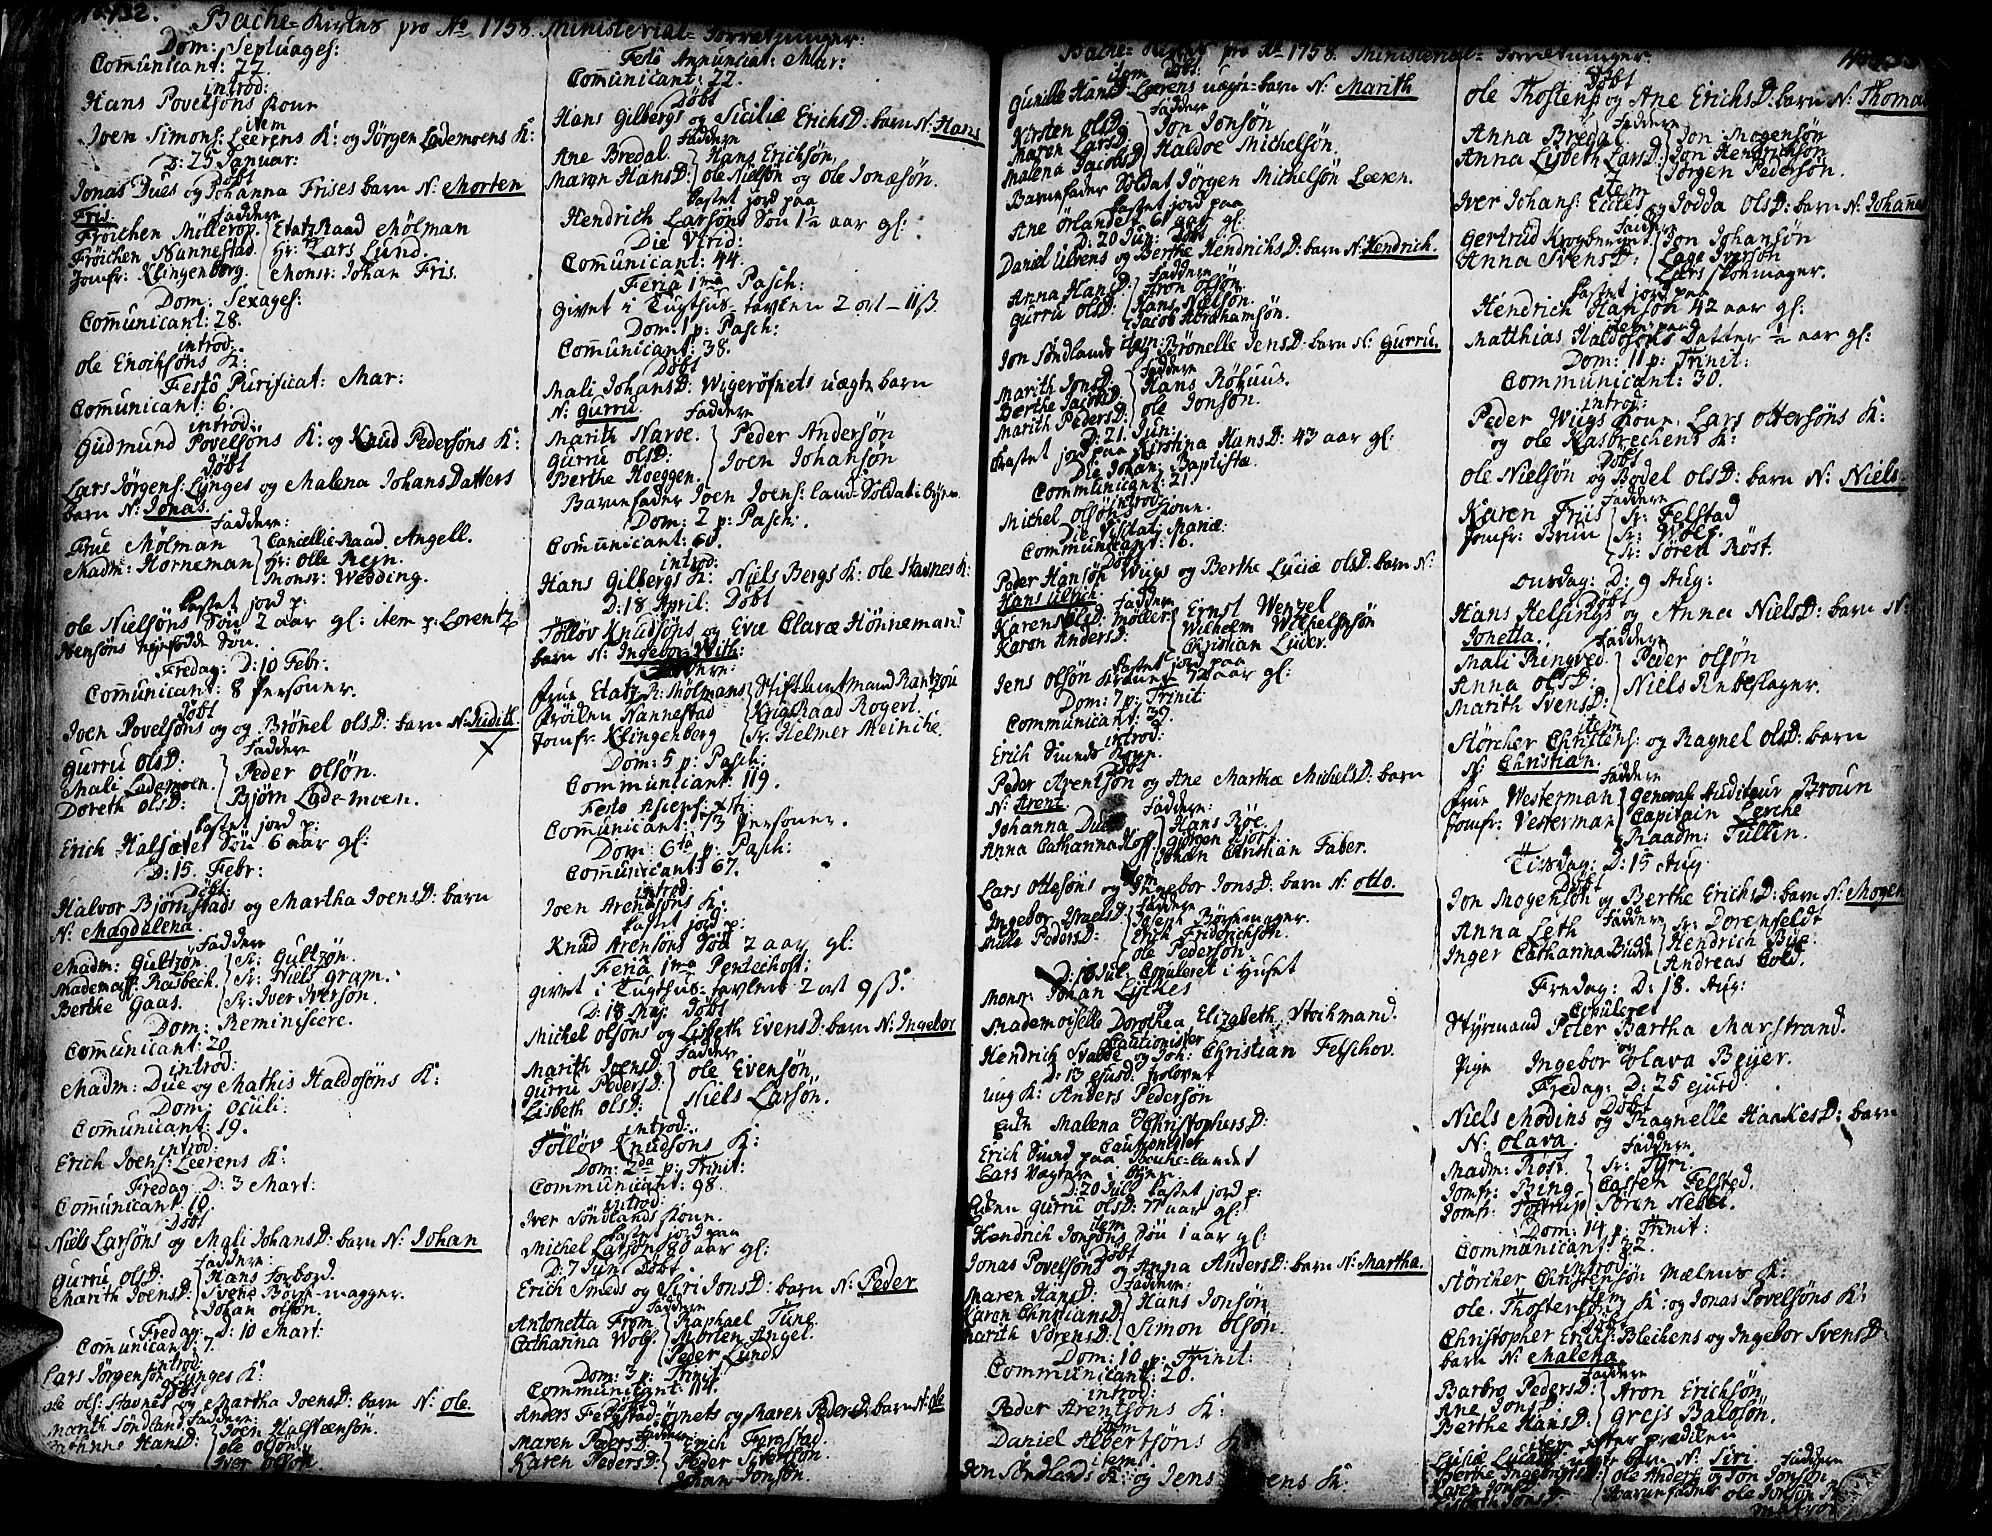 Bache-Kirkes pro Ao 1758. Ministerial-Forretninger.
Dom: Septuages:
Com̄unicant: 22.
introd:
Hans Povelsöns Kone
item
Joen Simons: Leerens K: og Jörgen Lademoens K:
D: 25 Januar:
Döbt
Jonas Dues og Johanna Frises barn N: Morten
Fris.
Faddere
Fröichen Möllerop. Etatz Raad Mölman
Fröichen Nannestad. Hr: Lars Lund.
Jomfr: Klingenberg. Monsr: Johan Fris.
Dom: Sexages:
Com̄unicant: 28.
introd:
ole Erichsöns K:
Festô Purificat: Mar:
Com̄unicant: 6.
introd:
Gudmund Povelsöns K: og Knud Pedersöns K:
Döbt
Lars Jörgens: Lynges og Malena Johans Datters
barn N: Jonas.
Faddere:
Frue Mölman Cancellie-Raad Angell.
Madm: Horneman Hr: Olle Rejn.
Monsr: Wedding.
kastet jord p:
ole Nielsöns Sön 2 aar gl: item p: Lorentz
Jensöns nyefödde Sön.
Fredag: D: 10 Febr:
Com̄unicant: 8 Personer.
Döbt
Joen Povelsöns og og Brönel olsD: barn N: Judith
Faddere
Gurru olsD:
Mali Lademoen. Peder olsön.
Doreth olsD: Bjørn Lade-moen.
kastet jord p:
Erich Halsætet Sön 6 aar gl:
D: 15. Febr:
Döbt
Halvor Bjørnstads og Martha JoensD: barn
N: Magdalena.
Faddere
Madm: Gultzön. Sr: Gultzön.
Mademois: Raisbech. Sr: Niels Gram.
Berthe Gaas. Sr: Iver Iverson.
Dom: Reminiscere.
Com̄unicant: 20
introd:
Madm: Due og Mathis Haldosöns K:
Dom: Oculi:
Com̄unicant: 19.
introd:
Erich Joens: Leerens K:
Fredag D: 3 Mart:
Com̄unicant: 10.
Döbt
Niels Larsöns og Mali JohansD: barn N: Johan
Faddere:
Gurru olsD: Hans forbord.
Marith JoensD: Svend Börst-magger.
Johan olsön.
Fredag: D: 10 Mart:
Com̄unicant: 7.
introd:
Lars Jörgensön Lynges K:
Döbt
ole ols: Stavnes og Martha JoensD: barn N: ole
Faddere:
Marith Söndland Joen Halsteensön.
HansD: ole olsön
Iver olsön
Festô Annunciat: Mar:
Com̄unicant: 22.
Döbt
Hans Gilbergs og Siciliæ ErichsD: barn N: Hans
Faddere
Ane Bredal Hans Erichsön,
Maren HansD: ole Nielsön og ole Jonæsön.
kastet jord paa
Hendrich Larsöns Sön 1½ aar gl:
Die Virid:
Com̄unicant: 44.
Feria 1ma Pasch:
givet i Tugthus-tavlen 2 ort - 11ß
Dom: 1 p: Pasch:
Com̄unicant: 38.
Döbt
Mali JohansD: Wigeröfnets uægte barn
N: Gurru.
Faddere
Marith Narve. Peder Andersön
Gurru olsD: Joen Johansön
Berthe Hoeggen.
Barnefader Joen Joens: land-Soldat i byen
Dom: 2 p: Pasch:
Com̄unicant: 60.
introd:
Hans Gilbergs K: Niels Bergs K: ole Stavnes K:
D: 18 April: Döbt
Töllöv Knudsöns og Eva Claræ Hönneman:
barn N: Ingebor With:
Faddere:
frue Etatz R: Mölmans Stiftamtmand Rantzou
Fröilen Nannestad Krigs Raad Rogert.
Jomfr: Klingenberg Sr: Helmer Meinche.
Dom: 5 p: Pasch:
Com̄unicant: 119.
Festo Ascens: Xsti:
Com̄unicant: 73 Personer.
Dom: 6ta p: Pasch:
Com̄unicant: 67.
introd:
Joen Arentsöns K:
kastet jord p:
Knud Arensöns Sön 2 aar gl:
Feria 1ma Pentechost:
givet i Tugthus-tavlen 2 ort 9ß.
D: 18 Maj: Döbt
Michel olsöns og Lisbeth EvensD: barn N: Ingebor
Faddere
Marith JoensD:
Gurru PedersD: ole Evensön,
Lisbeth olsD: Niels Larsön.
introd:
Töllöv Knudsöns K:
Dom: 2da p: Trinit:
Communicant: 98.
introd:
Iver Söndlands Kone.
kastet jord paa
Michel Larsön 80 aar gl:
D: 7 Jun: Döbt
Erich Smeds og Siri JonsD: barn N: Peder
Faddere
Antonetta From Raphael Tung.
Catharina Wolf. Morten Angel.
Peder Lund.
Dom: 3 p: Trinit
Communicant: 114.
Döbt
Anders Fergstad-öjnets og Maren PedersD: barn N: ole
Faddere
Maren PedersD: Erich Fergstad.
Karen PedersD: Peder Sivensön.
Johan Jonsön.
Bache-Kirkes pro Ao 1758. Ministerial-Forretninger.
item Döbt
Gunille HansD: Leerens uægte-barn N: Marith
Faddere
Kirsten olsD:
Maren LarsD: Jon Jonsön
Malena JacobsD: Haldoe Michelsön.
Barnefader Soldat Jörgen Michelsön Leeren.
kastet jord paa
Ane örlandes 61 aar gl:
D: 20 Jun: Döbt
Daniel Ulvens og Berthe HendrichsD: barn N: Hendrich.
Faddere
Anna HansD: Aron olsön.
Gurru olsD: Hans Nielsön.
Jacob Abrahamsön.
item:
Jon Söndlands og Brönelle JensD: barn N: Gurru.
Faddere
Marith JonsD:
Berthe JacobsD: Hans Röhuus.
Marith PedersD: ole Jonsön.
D: 21. Jun:
kastet jord paa Kirstina HansD: 43 aar gl:
Die Johan: Baptistæ.
Communicant: 21.
introd:
Michel olsöns Kone.
Die Visitat: Mariæ:
Communicant: 16.
Döbt
Peder Hansön Wigs og Berthe Luciæ olsD: barn N:
Hans Ulrich.
Faddere
Karen Möller Ernst Wenzel
Karen AndersD: Wilhelm Wilhelmsön
Christian Lüder.
kastet jord paa
Jens olsön 72 aar gl:
Dom: 7 p: Trinit:
Communicant: 39.
introd:
Erich Smeds Kone.
Döbt
Peder Arentsön og Ane Marthæ MichelsD: barn
N: Arent.
Faddere:
Johanna Due Hans Röe.
Anna Catharina Hoff. Gjörgen Hjort.
Johan Christian Faber.
item
Lars Ottesöns og Ingebor JonsD: barn N: otto.
Faddere
Ingebor IsraelsD: Joseph Börstmager.
Niels PedersD: Erich Friderichsön.
ole Pedersön.
D: 10 Jul: Copuleret i Huset
Monsr: Johan Lyches
og
Mademoiselle Dorothea Elizabeth Stochmand.
Cautionister
Hendrich Svabbe og Joh: Christian Felschov.
D: 13 ejusd: trolovet
ung K: Anders Pedersön
og
Enke Malena ChristophersD:
Cautionister
Erich Smed paa Bache-landet
Lars Vægtere i byen.
D: 20 Jul: kastet jord p:
Enken Gurru olsD: 77 aar gl:
item
Hendrich Jonsöns Sön 1 aar gl:
Döbt
Jonas Povelsöns og Anna AndersD: barn N: Martha.
Faddere:
Maren HansD: Hans Jonsön,
Karen ChristiansD:
Marith SörensD: Simon olsön.
Dom: 10 p: Trinit:
Communicant: 20.
introd:
Peder Arentsöns K:
item
Daniel Albertsöns K:
item
Jon Söndlands K: og Jens K:
Döbt
ole Thostens og Ane ErichsD: barn N: Thomas
Faddere
Anna Bredal Jon Mogensön
Anna Lisbeth LarsD: Jon Hendrichsön
Jörgen Pedersön.
item
Iver Johans: Eccles og Jodda olsD: barn N: Johanna
Faddere
Gertrud Jon Johansön
Anna SvensD: Lage Iversön
Lars skomager.
kastet jord paa
Hendrich Hansön 42 aar gl:
item paa
Matthias Haldosöns Datter ½ aar gl:
Dom: 11 p: Trinit:
Communicant: 30.
introd:
Peder Wigs Kone, Lars ottersöns K:
og ole Hasbrechens K:
Döbt
ole Nielsön og Bodel olsD: barn N: Niels.
Faddere
Karen Friis Sr: Felstad
Jomfr: Brun Sr: Wolf.
Sr: Sören Röst.
onsdag: D: 9 Aug:
Döbt
Hans Helsings og Anna NielsD: barn N:
Jonetta.
Faddere
Mali Ringved. Peder olsön
Anna olsD: Niels Anbeslager.
Marith SvensD:
item
Störcher Christens: og Ragnel olsD: barn
N: Christian.
Faddere
frue Westerman General Auditeur Broun
Jomfr: Vesterman Capitain Lerche
Raadm: Tullin.
Tirsdag: D: 15 Aug
Döbt
Jon Mogensön og Berthe ErichsD: barn N: Mogen
Faddere
Anna Leth Sr: Dorenfeldt
Inger Catharina Budde Hendrich Bye
Andreas Cold.
Fredag: D: 18. Aug:
Copuleret
Styrmand Peter Bartha Marstrand.
og
Pige Ingebor Olava Beyer.
Fredag: D: 25 ejusd
Döbt
Niels Modins og Ragnelle HaakesD: barn
N: olava.
Faddere
Madm: Röst. Sr: Tyri.
Jomfr: Bing Casten Felsted.
Jomfr: Tostrup Sören Nebel.
Dom: 14 p: Trinit:
Communicant: 32.
introd:
Störcher Christensön Mælnes K:
item
ole Thostensöns K: og Jonas Povelsöns K:
Döbt
Christopher Erichs: Blechens og Ingebor SvensD:
barn N: Malena.
Faddere
Barbro PedersD: Aron Erichsön
Ane JonsD: Grejs Baldsön.
Berthe HansD:
item efter prædiken
uægte barn N: Siri Faddere
Berthe IngebrigtsD: ole Anders: og Jon Jonsön
Karen JonsD: Barnefader ole Jonsön
Lisbeth JonsD: